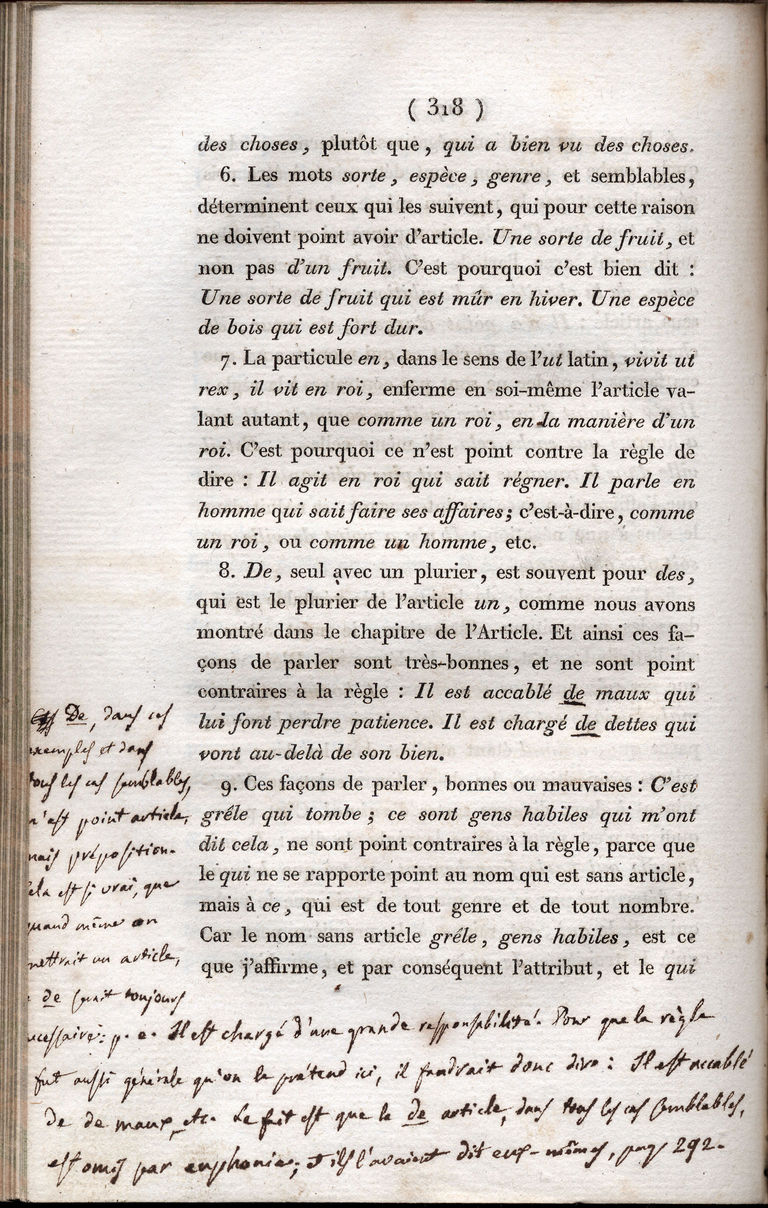 ( 318 )
des choses, plutôt que, qui a bien vu des choses.
6. Les mots sorte, espèce, genre, et semblables,
déterminent ceux qui les suivent, qui pour cette raison
ne doivent point avoir d'article. Une sorte de fruit, et
non pas d'un fruit. C'est pourquoi c'est bien dit :
Une sorte de fruit qui est mûr en hiver. Une espèce
de bois qui est fort dur.
7. La particule en, dans le sens de l'ut latin, vivit ut
rex, il vit en roi, enferme en soi-même l'article va-
lant autant, que comme un roi, en la manière d'un
roi. C'est pourquoi ce n'est point contre la règle de
dire : Il agit en roi qui sait régner. Il parle en
homme qui sait faire ses affaires; c'est-à-dire, comme
un roi, ou comme un homme, etc.
8. De, seul avec un plurier, est souvent pour des,
qui est le plurier de l'article un, comme nous avons
montré dans le chapitre de l'Article. Et ainsi ces fa-
çons de parler sont très-bonnes, et ne sont point
contraires à la règle : Il est accablé de maux qui
lui font perdre patience. Il est chargé de dettes qui
vont au-delà de son bien.
9. Ces façons de parler, bonnes ou mauvaises : C'est
grêle qui tombe ; ce sont gens habiles qui m'ont
dit cela, ne sont point contraires à la règle, parce que
le qui ne se rapporte point au nom qui est sans article,
mais à ce, qui est de tout genre et de tout nombre.
Car le nom sans article grêle, gens habiles, est ce
que j'affirme, et par conséquent l'attribut, et le qui
De, dans ces
exemples et dans
tous les cas semblables,
n'est point article,
mais préposition.
Cela est si vrai, que
quand même on
mettrait un article,
de serait toujours
nécessaire: p. e. Il est chargé d'une grande responsabilité. Pour que la règle
fut aussi générale qu'on le prétend ici, il faudrait donc dire : Il est accablé
de de maux, etc. Le fait est que le de article, dans tous les cas semblables,
est omis par euphonie; et ils l'avaient dit eux-mêmes, page 292.